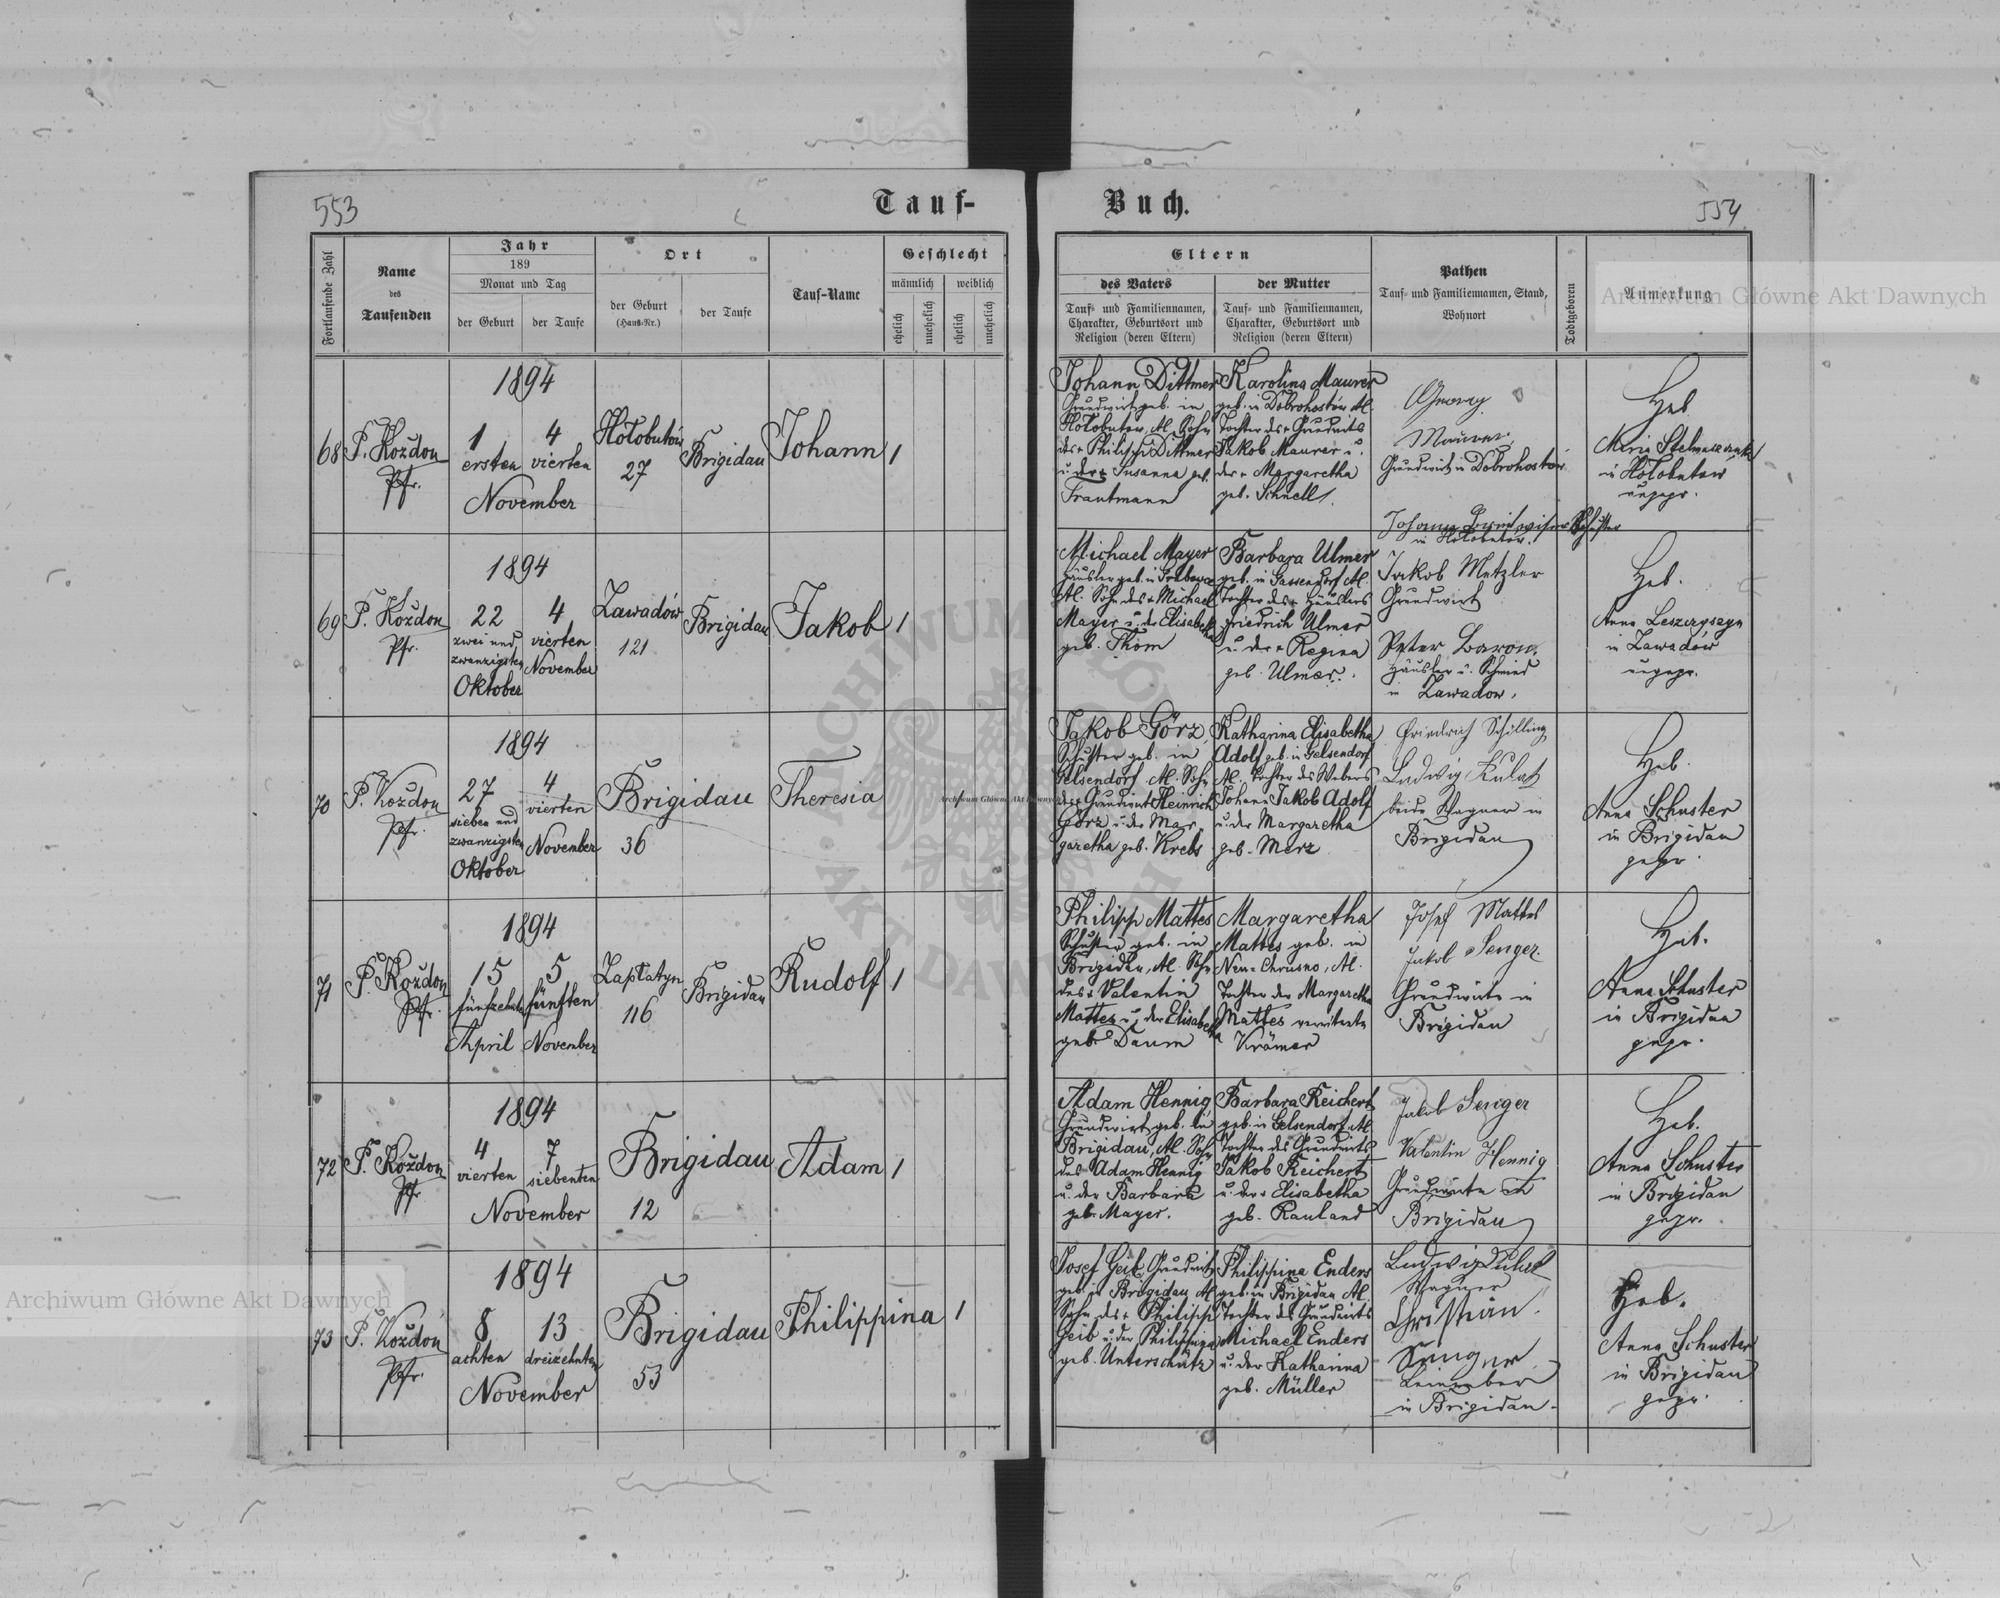 553
Tauf-
Buch.
554
Fortlaufende Zahl
Name
des
Taufenden
Jahr
189
Monat und Tag
der Geburt
der Taufe
Ort
der Geburt
(Haus-Nr.)
der Taufe
Tauf-Name
Geschlecht
männlich
weiblich
ehelich
unehelich
ehelich
unehelich
Eltern
des Vaters
Tauf- und Familiennamen,
Charakter, Geburtsort und
Religion (deren Eltern)
der Mutter
Tauf- und Familiennamen,
Charakter, Geburtsort und
Religion (deren Eltern)
Pathen
Tauf- und Familiennamen, Stand,
Wohnort
Todtgeboren
Anmerkung
68
P. Kożdon
Pfr.
1894
1
ersten
4
vierten
November
Hołobutów
27
Brigidau
Johann
1
Johann Dittmer
Grundwirt geb. in
Hołobutow, A. Sohn
des + Philipp Dittmer
u. der + Susanna geb.
Trautmann
Karolina Maurer
geb. in Dobrohostów A.
Tochter des + Grundwirts
Jakob Maurer u.
der + Margaretha
geb. Schnell.
Georg
Maurer
Grundwirt in Dobrohostow
Johann
in Hołobutow.
Heb
in Hołobutow
ungepr.
69
P. Kożdon
Pfr.
1894
22
zwei und
zwanzigsten
Oktober
4
vierten
November
Zawadów
121
Brigidau
Jakob
1
Michael Mayer
Häusler geb. in
A. Sohn des + Michael
Mayer u. der Elisabetha
geb. Thom
Barbara Ulmer
geb. in Gassendorf A.
Tochter des + Häuslers
Friedrich Ulmer
u. der + Regina
geb. Ulmer.
Jakob Metzler
Grundwirt
Peter Baron
Häusler u. Schmied
in Zawadow.
Heb.
Anna Leszczyszyn
in Zawadów
ungepr.
70
P. Kożdon
Pfr.
1894
27
sieben und
zwanzigsten
Oktober
4
vierten
November
Brigidau
36
Theresia
Jakob Görz
Schuster geb. in
Gelsendorf A. Sohn
des + Grundwirt Heinrich
Görz u. der Mar-
garetha geb. Krebs
Katharina Elisabetha
Adolf geb. in Gelsendorf
A. Tochter des Webers
Johann Jakob Adolf
u. der Margaretha
geb. Merz
Friedrich Schilling
Ludwig Kulat
beide Wagner in
Brigidau
Heb.
Anna Schuster
in Brigidau
gepr.
71
P. Kożdon
Pfr.
1894
15
fünfzehnten
April
5
fünften
November
Zaplatyn
116
Brigidau
Rudolf
1
Philipp Mattes
Schuster geb. in
Brigidau, A. Sohn
des + Valentin
Mattes u. der Elisabetha
geb. Daum
Margaretha
Mattes geb. in
Neu-Chrusno, A.
Tochter der Margaretha
Mattes
Krämer
Josef Mattes
Jakob Senger
Grundwirte in
Brigidau
Heb.
Anna Schuster
in Brigidau
gepr.
72
P. Kożdon
Pfr
1894
4
vierten
7
siebenten
November
Brigidau
12
Adam
1
Adam Hennig
Grundwirt geb. in
Brigidau, A. Sohn
des Adam Hennig
u. der Barbara
geb. Mayer.
Barbara Reichert
geb. in Gelsendorf A.
Tochter des Grundwirts
Jakob Reichert
u. der + Elisabetha
geb. Rauland
Jakob Senger
Valentin Hennig
Grundwirte in
Brigidau
Heb.
Anna Schuster
in Brigidau
gepr.
73
P. Kożdon
Pfr.
1894
8
achten
13
dreizehnten
November
Brigidau
53
Philippina
1
Josef Geib, Grundwirt
geb. in Brigidau A.
Sohn des + Philipp
Geib u. der Philippina
geb. Unterschütz
Philippina Enders
geb. in Brigidau A.
Tochter des Grundwirts
Michael Enders
u. der Katharina
geb. Müller
Ludwig Kulat
Wagner
Christian
Senger
in Brigidau.
Heb.
Anna Schuster
in Brigidau
gepr.
Archiwum Główne Akt Dawnych
Archiwum Główne Akt Dawnych
Archiwum Główne Akt Dawnych